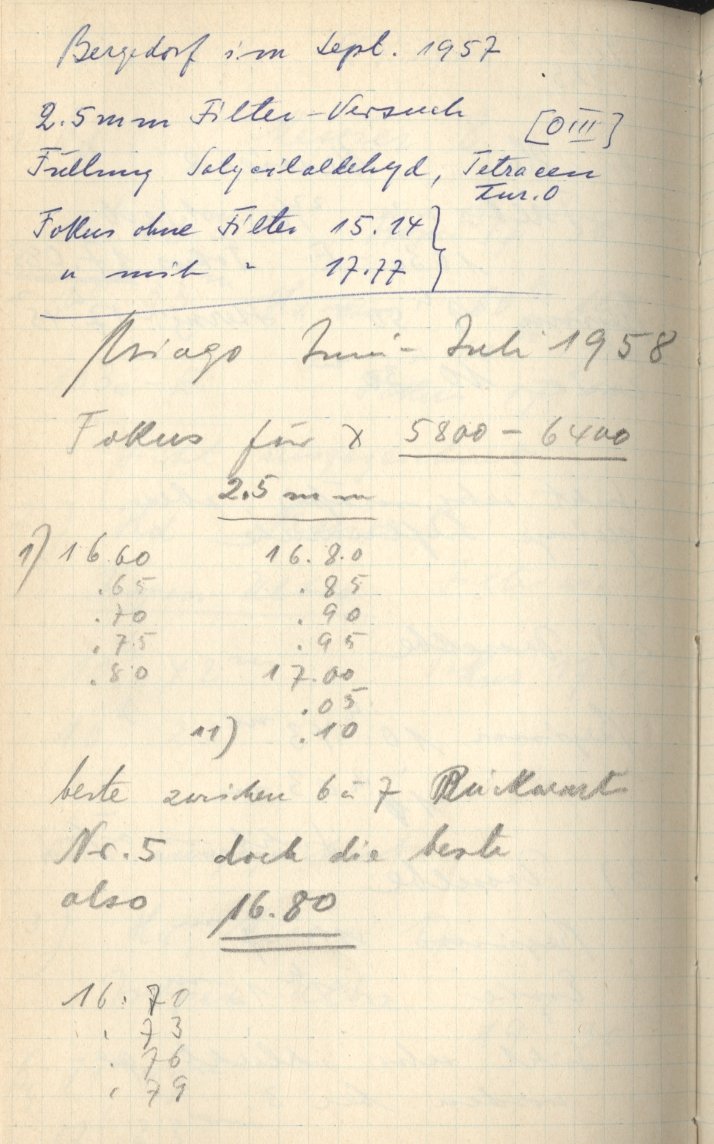 Bergedorf im Sept. 1957
2.5mm Filter-Versuch [OIII]
Füllung Salycilaldehyd, Tetracen
Fokus ohne Filter 15.14
" mit " 17.77
Asiago Juni-Juli 1958
Fokus für λ 5800 - 6400
2.5 mm
1) 16.60 16.80
.65 .85
.70 .90
.75 .95
.80 17.00
.05
11) .10
beste zwischen 6 à 7 Rückwärt
Nr. 5 doch die beste
also 16.80
16.70
.73
.76
.79